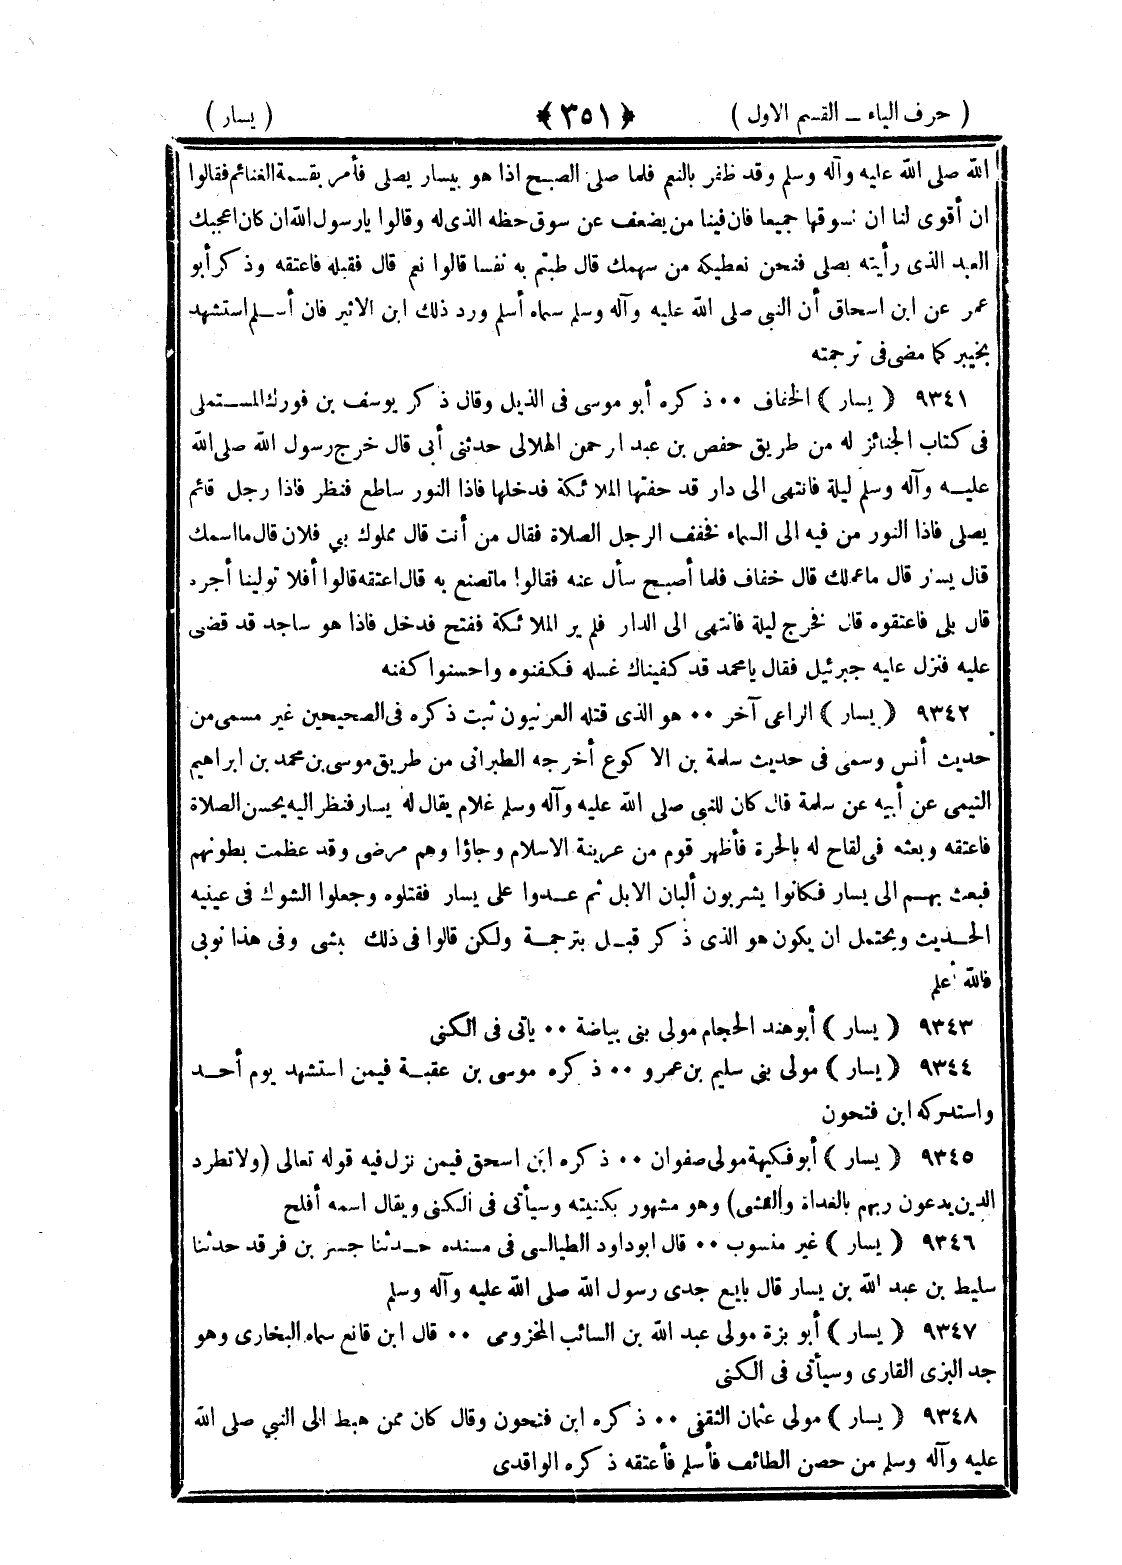 ( حرف الياء ــ القسم الاول ) ﴿ ٣٥١ ﴾ ( يسار )
الله صلى الله عليه وآله وسلم وقد ظفر بالنعم فلما صلى الصبح اذا هو بيسار يصلى فأمر بقسمة الغنائم فقالوا
ان أقوى لنا ان نسوقها جميعا فان فينا من يضعف عن سوق حظه الذى له وقالوا يا رسول الله ان كان اعجبك
العبد الذى رأيته يصلى فنحن نعطيكه من سهمك قال طبتم به نفسا قالوا نعم قال فقبله فاعتقه وذكر أبو
عمر عن ابن اسحاق أن النبى صلى الله عليه وآله وسلم سماه أسلم ورد ذلك ابن الاثير فان أسلم استشهد
بخيبر كما مضى فى ترجمته
٩٣٤١ ( يسار ) الخفاف ٠٠ ذكره أبو موسى فى الذيل وقال ذكر يوسف بن فورك المستملى
فى كتاب الجنائز له من طريق حفص بن عبد ارحمن الهلالى حدثنى أبى قال خرج رسول الله صلى الله
عليه وآله وسلم ليلة فانتهى الى دار قد حفتها الملائكة فدخلها فاذا النور ساطع فنظر فاذا رجل قائم
يصلى فاذا النور من فيه الى السماء فخفف الرجل الصلاة فقال من أنت قال مملوك بي فلان قال ما اسمك
قال يسار قال ماعملك قال خفاف فلما أصبح سأل عنه فقالوا ماتصنع به قال اعتقه قالوا أفلا تولينا أجره
قال بلى فاعتقوه قال فخرج ليلة فانتهى الى الدار فلم ير الملائكة ففتح فدخل فاذا هو ساجد قد قضى
عليه فنزل عليه جبرئيل فقال يا محمد قد كفيناك غسله فكفنوه واحسنوا كفنه
٩٣٤٢ ( يسار ) الراعى آخر ٠٠ هو الذى قتله العرنيون ثبت ذكره فى الصحيحين غير مسمى من
حديث أنس وسمى فى حديث سلمة بن الاكوع أخرجه الطبرانى من طريق موسى بن محمد بن ابراهيم
التيمى عن أبيه عن سلمة قال كان للنبى صلى الله عليه وآله وسلم غلام يقال له يسار فنظر اليه يحسن الصلاة
فاعتقه وبعثه فى لقاح له بالحرة فأظهر قوم من عرينة الاسلام وجاؤا وهم مرضى وقد عظمت بطونهم
فبعث بهم الى يسار فكانوا يشربون ألبان الابل ثم عدوا على يسار فقتلوه وجعلوا الشوك فى عينيه
الحديث ويحتمل ان يكون هو الذى ذكر قبل بترجمة ولكن قالوا فى ذلك وفى هذا نوبى
فالله أعلم
٩٣٤٣ ( يسار ) أبو هند الحجام مولى بنى بياضة ٠٠ ياتى فى الكنى
٩٣٤٤ ( يسار ) مولى بني سليم بن عمرو ٠٠ ذكره موسى بن عقبة فيمن استشهد يوم أحد
واستدركه ابن فتحون
٩٣٤٥ ( يسار ) أبو فكيهة مولى صفوان ٠٠ ذكره ابن اسحق فيمن نزل فيه قوله تعالى (ولا تطرد
الذين يدعون ربهم بالغداة والعشى) وهو مشهور بكنيته وسيأتى فى الكنى ويقال اسمه أفلح
٩٣٤٦ ( يسار ) غير منسوب ٠٠ قال ابو داود الطيالسى فى مسنده حدثنا جسر بن فرقد حدثنا
سليط بن عبد الله بن يسار قال بايع جدى رسول الله صلى الله عليه وآله وسلم
٩٣٤٧ ( يسار ) أبو بزة مولى عبد الله بن السائب المخزومى ٠٠ قال ابن قانع سماه البخارى وهو
جد البزى القارى وسيأتى فى الكنى
٩٣٤٨ ( يسار ) مولى عثمان الثقفى ٠٠ ذكره ابن فتحون وقال كان ممن هبط الى النبي صلى الله
عليه وآله وسلم من حصن الطائف فأسلم فأعتقه ذكره الواقدى